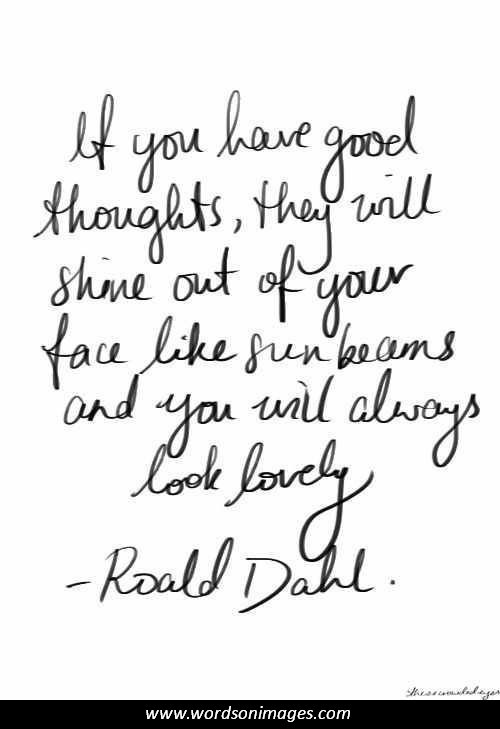 If you have good
thoughts, they will
shine out of your
face like sunbeams
and you will always
look lovely
- Roald Dahl.
www.wordsonimages.com